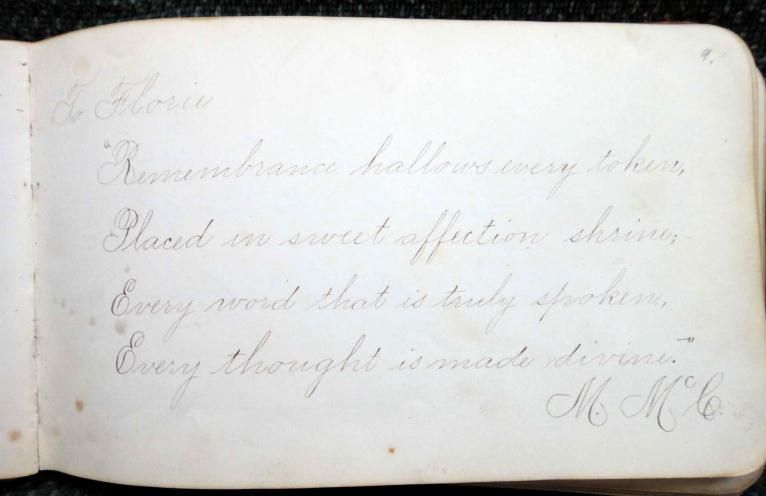 9.
To Florie
"Remembrance hallows every token,
Placed in sweet affection shrine;
Every word that is truly spoken,
Every thought is made divine."
M. McC.